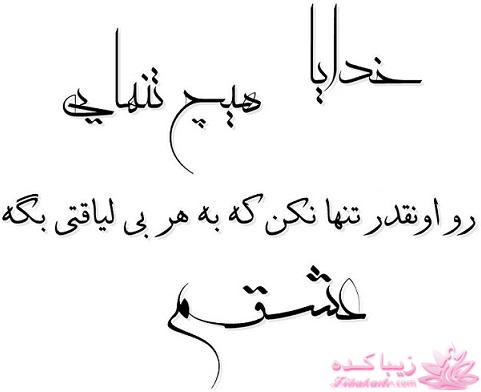 خدایا
هیچ تنهایی
رو اونقدر تنها نکن که به هر بی لیاقتی بگه
عشقم
زیباکده
Zibakade.com